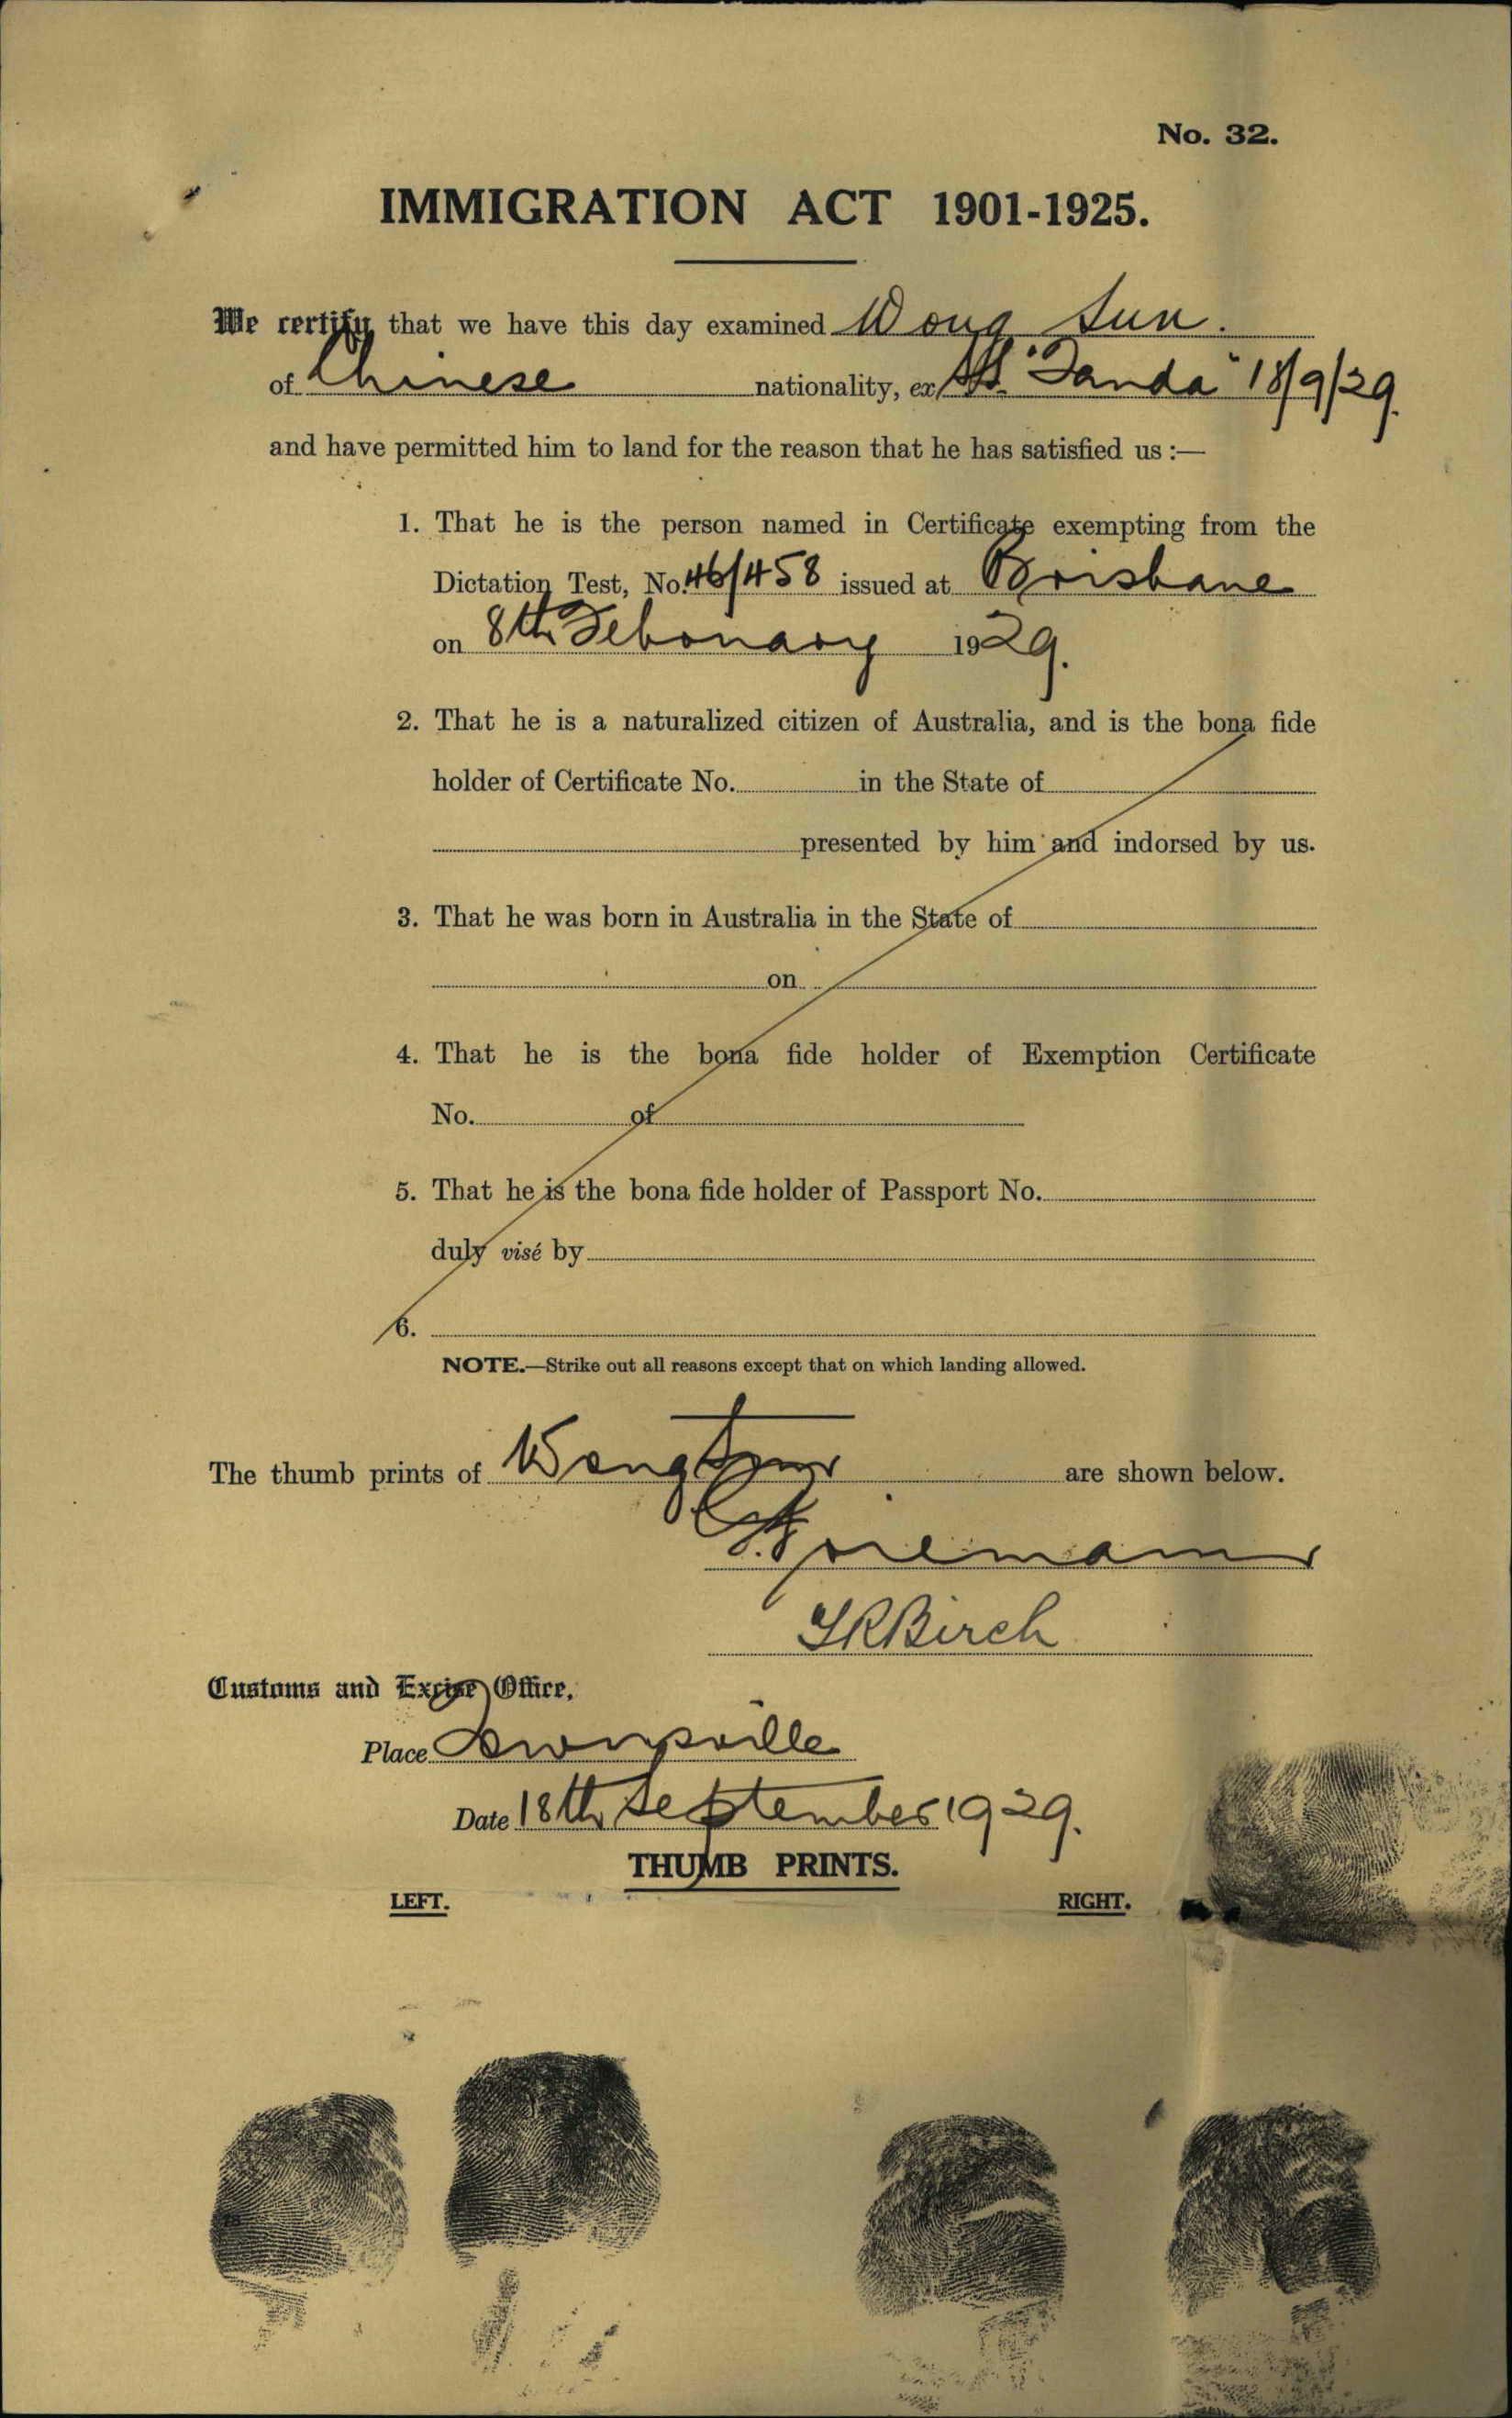 No. 32.
IMMIGRATION ACT 1901-1925.
We certify that we have this day examined Wong Sun.
of Chinese nationality, ex S.S. "Tanda" 18/9/29.
and have permitted him to land for the reason that he has satisfied us :—
1. That he is the person named in Certificate exempting from the
Dictation Test, No. 46/458 issued at Brisbane
on 8th February 1929.
2. That he is a naturalized citizen of Australia, and is the bona fide
holder of Certificate No. in the State of
presented by him and indorsed by us.
3. That he was born in Australia in the State of
on
4. That he is the bona fide holder of Exemption Certificate
No. of
5. That he is the bona fide holder of Passport No.
duly visé by
6.
NOTE.—Strike out all reasons except that on which landing allowed.
The thumb prints of Wong Sun are shown below.
Foreman
Birch
Customs and Excise Office,
Place Townsville
Date 18th September 1929.
THUMB PRINTS.
LEFT. RIGHT.